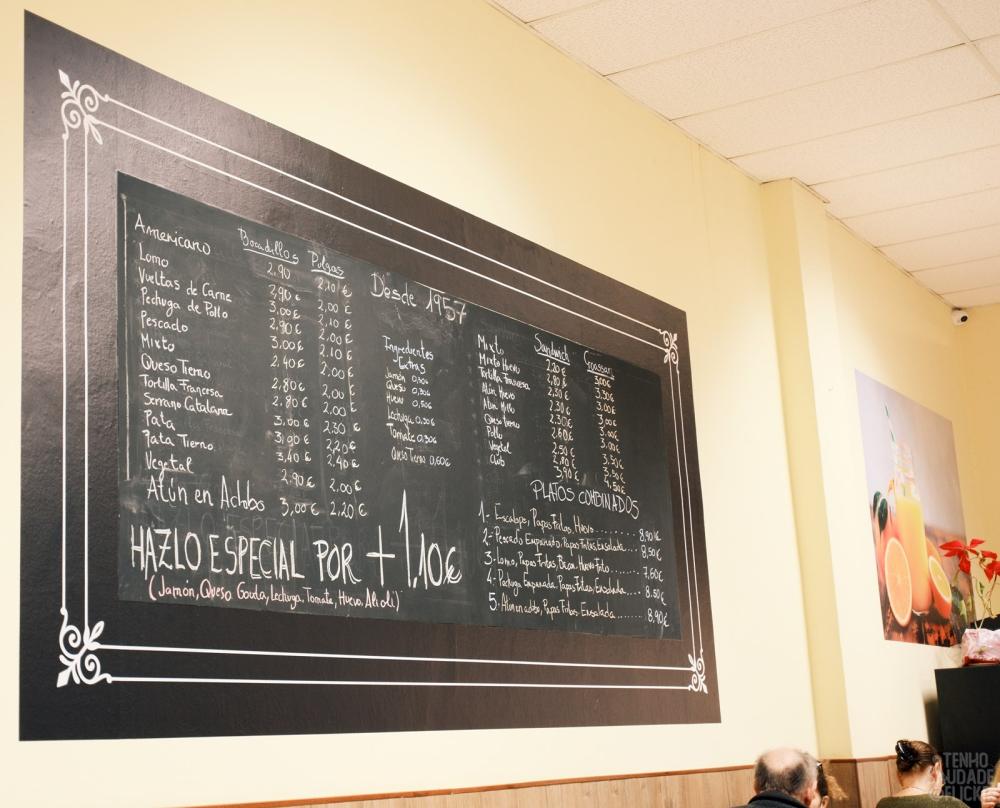 Bocadillos Pulgas
Americano 2,90 2,10 €
Lomo 2,90 € 2,00 €
Vueltas de Carne 3,00 € 2,10 €
Pechuga de Pollo 2,90 € 2,00 €
Pescado 3,00 € 2,10 €
Mixto 2,40 € 2,00 €
Queso Tierno 2,80 € 2,00 €
Tortilla Francesa 2,80 € 2,00 €
Serrano Catalana 3,00 € 2,30 €
Pata 3,90 € 2,20 €
Pata Tierno 3,40 € 2,40 €
Vegetal 2,90 € 2,00 €
Atún en Adobo 3,00 € 2,20 €
HAZLO ESPECIAL POR +1,10€
(Jamón, Queso Gouda, Lechuga, Tomate, Huevo, Alioli)
Desde 1957
Ingredientes
Extras
Jamón 0,50€
Queso 0,50€
Huevo 0,50€
Lechuga 0,50€
Tomate 0,30€
Queso Tierno 0,60€
Sandwich Croassant
Mixto 2,20€ 3,00€
Mixto Huevo 2,80€ 3,30€
Tortilla Francesa 2,30€ 3,00€
Atún Huevo 2,30€ 3,00€
Atún Millo 2,30€ 3,00€
Queso tierno 2,60€ 3,00€
Pollo 2,50€ 3,50€
Vegetal 2,80€ 3,50€
Club 3,90€ 4,50€
PLATOS COMBINADOS
1.- Escalope, Papas Fritas, Huevo........ 8,90€
2.- Pescado Empanado, Papas Fritas, Ensalada.... 8,50€
3.- Lomo, Papas Fritas, Bacon, Huevo Frito...... 7,60€
4.- Pechuga Empanada, Papas Fritas, Ensalada... 8,50€
5.- Atún en adobo, Papas Fritas, Ensalada...... 8,90€
TENHO
FLICKR